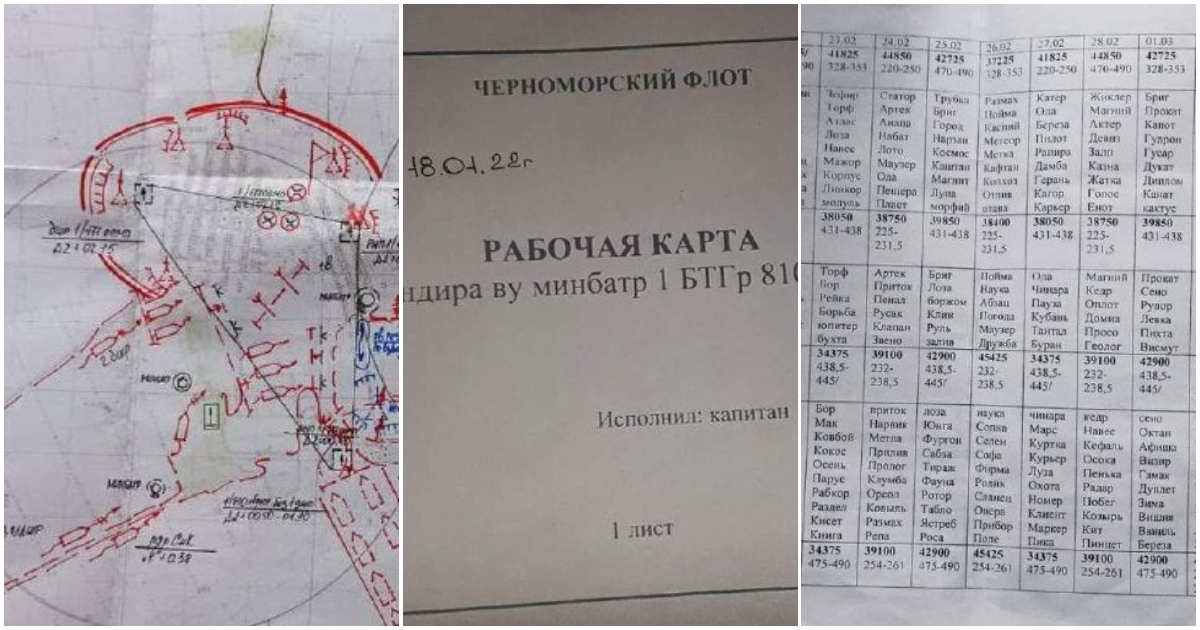 2 дшр
МИНБАТР
МИНБАТР
ЧЕРНОМОРСКИЙ ФЛОТ
18.01.22г
РАБОЧАЯ КАРТА
ндира ву минбатр 1 БТГр 810
Исполнил: капитан
1 лист
23.02 24.02 25.02 26.02 27.02 28.02 01.03
41825 44850 42725 37225 41825 44850 42725
328-353 220-250 470-490 328-353 220-250 470-490 328-353
Зефир Статор Трубка Размах Катер Жиклер Бриг
Торф Артек Бриг Пойма Ода Магний Прокат
Атлас Анапа Город Каспий Береза Актер Капот
Лоза Набат Нарзан Метеор Пилот Девиз Гудрон
Навес Лото Космос Метка Рапира Залп Гусар
Мажор Маузер Каштан Кафтан Дамба Казна Дукат
Корпус Ода Магнит Колхоз Герань Жатка Диплом
Линкор Пещера Лупа Отлив Кагор Голос Канат
модуль Пласт морфий отава Карьер Енот кактус
38050 38750 39850 38400 38050 38750 39850
431-438 225- 431-438 225- 431-438 225- 431-438
231,5 231,5 231,5
Торф Артек Бриг Пойма Ода Магний Прокат
Бор Приток Лоза Наука Чинара Кедр Сено
Рейка Пенал боржом Абзац Пауза Оплот Рупор
Борьба Русак Клин Погода Кубань Домна Левка
юпитер Клапан Руль Маузер Тантал Просо Пихта
бухта Звено залив Дружба Буран Геолог Висмут
34375 39100 42900 45425 34375 39100 42900
438,5- 232- 438,5- 232- 438,5- 232- 438,5-
445/ 238,5 445/ 238,5 445/ 238,5 445/
Бор приток лоза наука чинара кедр сено
Мак Нарвик Юнга Сопка Марс Навес Октан
Ковбой Метла Фургон Селен Куртка Кефаль Афиша
Кокос Прилив Сабза Софа Курьер Осока Визир
Осень Пролог Тираж Фирма Луза Пенька Гамак
Парус Клумба Фауна Ролик Охота Радар Дуплет
Рабкор Ореол Ротор Сланец Номер Побег Зима
Раздел Ковыль Табло Опера Клиент Козырь Вишня
Кисет Размах Ястреб Прибор Маркер Кит Ваниль
Книга Репа Роса Поле Пика Пинцет Береза
34375 39100 42900 45425 34375 39100 42900
475-490 254-261 475-490 254-261 475-490 254-261 475-490